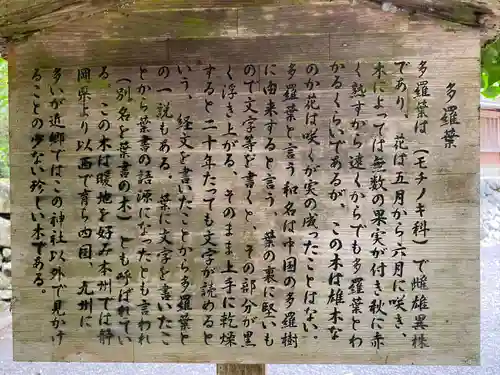 多羅葉
多羅葉は（モチノキ科）で雌雄異株
であり、花は五月から六月に咲き、
木によっては無数の果実が付き秋に赤
く熟すから遠くからでも多羅葉とわ
かるくらいであるが、この木は雄木な
のか花は咲くが実の成ったことはない。
多羅葉と言う和名は中国の多羅樹
に由来すると言う、葉の裏に堅いも
ので文字等を書くと、その部分が黒
く浮き上がる、そのまま上手に乾燥
すると二十年たても文字が読めると
いう、経文を書いたことから多羅葉と
の一説もある。葉に文字を書いたこ
とから葉書の語源になったとも言われ
（別名を葉書の木）とも呼ばれてい
る、この木は暖地を好み本州では静
岡県より以西で育ち四国、九州に
多いが近郷ではこの神社以外で見かけ
ることの少ない珍しい木である。